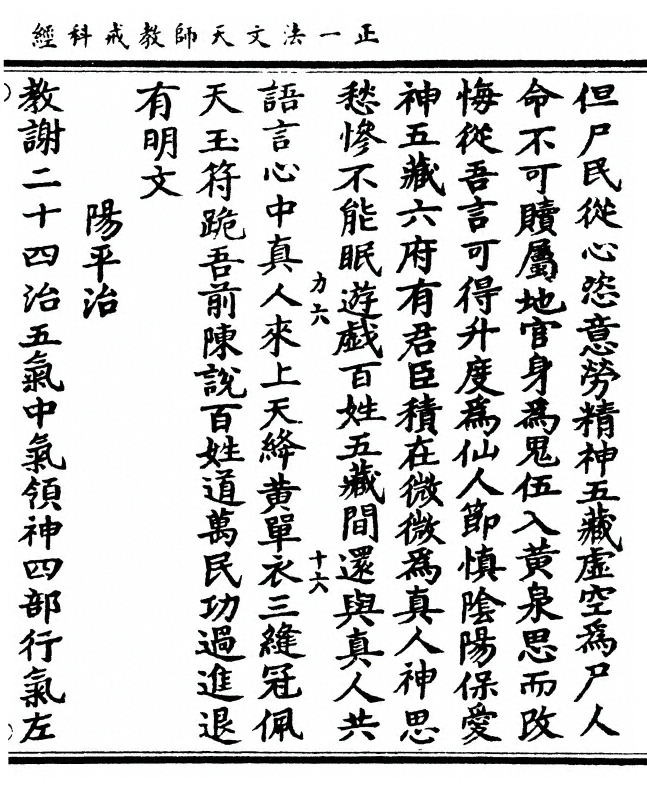 正一法文天師教戒科經
但尸民從心恣意勞精神五藏虛空為尸人
命不可贖屬地官身為鬼伍入黃泉思而改
悔從吾言可得升度為仙人節慎陰陽保愛
神五藏六府有君臣積在微微為真人神思
愁慘不能眠遊戲百姓五藏間還與真人共
力六
十六
語言心中真人來上天絳黃單衣三縫冠佩
天玉符跪吾前陳說百姓道萬民功過進退
有明文
陽平治
教謝二十四治五氣中氣領神四部行氣左